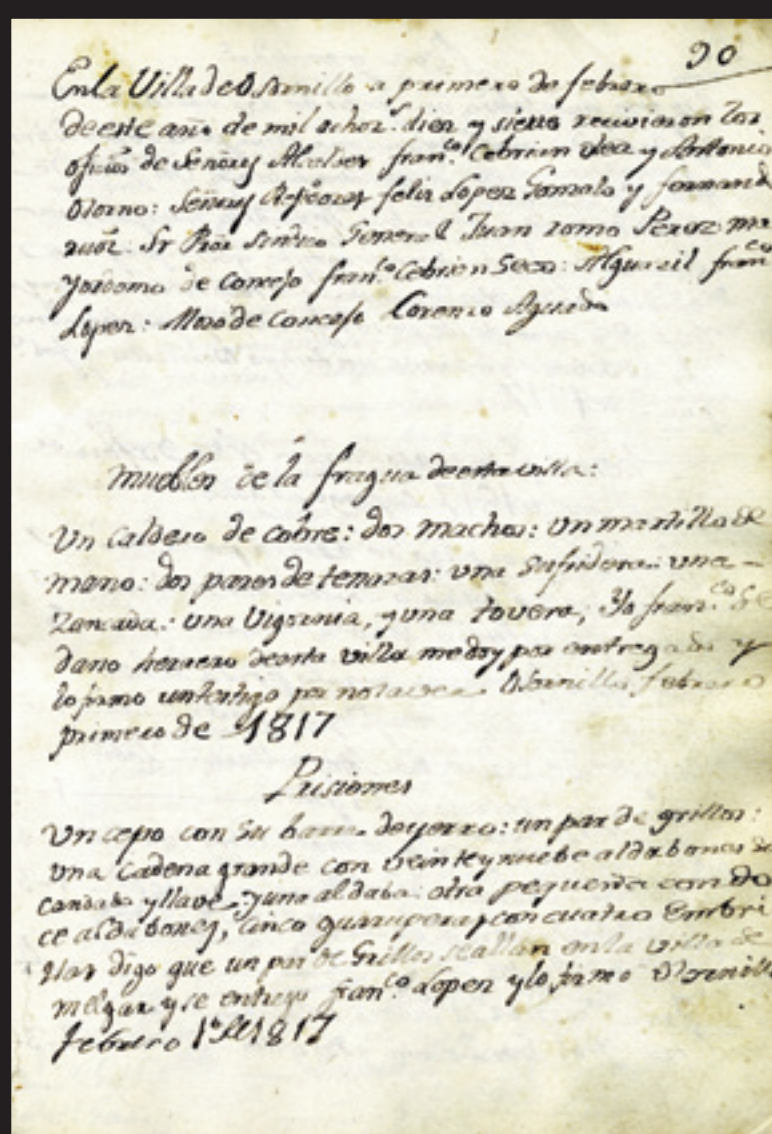 90
En la Villa de Osornillo a primero de febrero
de este año de mil ochoz.s diez y siete recivieron los
ofizios de Señores Alcaldes fran.co Cebrian y Antonio
Osorno: Señores Rejidores felix Lopez Gonzalo y fernand
Sr Pror Sindico General Juan romo Perez ma
yordomo de Concejo fran.co Cebrian Seco: Alguazil fran.co
Lopez: Mozo de Concejo Lorenzo Aguado
muebles de la fragua de esta villa:
Un caldero de cobre: dos machos: un martillo de
mano: dos pares de tenazas: una Sufridera: una
una Vigornia, y una tovera, Yo fran.co Se
dano herrero de esta villa me doy por entregado y
lo firmo un testigo por no saver Osornillo febrero
primero de 1817
Prisiones
Un cepo con su barra de yerro: un par de grillos:
una cadena grande con veinte y nuebe aldabones su
candado y llave y una aldaba: otra pequeña con do
ce aldabones, cinco con cuatro
digo que un par de Grillos se allan en la villa de
melgar y se entrego fran.co Lopez y lo firmo Osornillo
febrero 1º de 1817